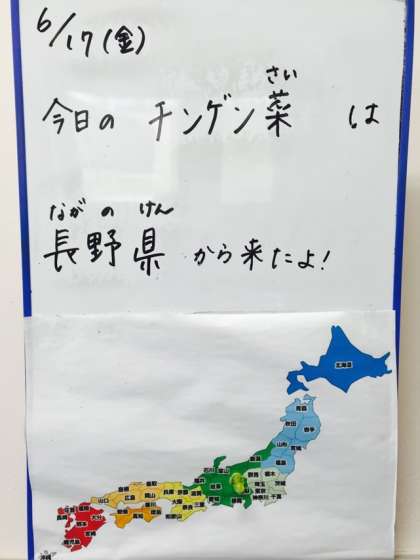 6/17(金)
さい
今日の チンゲン菜 は
ながの けん
長野県 から来たよ!
北海道
青森
秋田
岩手
山形
宮城
福島
新潟
石川
富山
群馬
栃木
茨城
埼玉
東京
神奈川
千葉
岐阜
静岡
愛知
福井
滋賀
三重
京都
奈良
和歌山
大阪
兵庫
鳥取
岡山
島根
広島
山口
香川
徳島
愛媛
高知
福岡
大分
佐賀
長崎
熊本
宮崎
鹿児島
沖縄